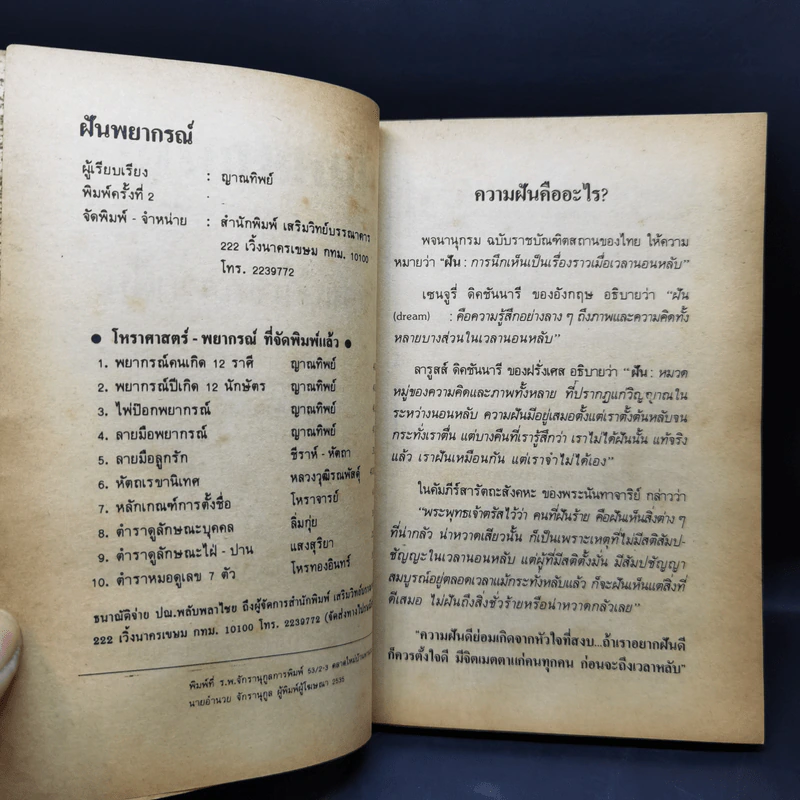 ฝันพยากรณ์
ผู้เรียบเรียง : ญาณทิพย์
พิมพ์ครั้งที่ 2
จัดพิมพ์ - จำหน่าย : สำนักพิมพ์ เสริมวิทย์บรรณาคาร
222 เวิ้งนาครเขษม กทม. 10100
โทร. 2239772
● โหราศาสตร์ - พยากรณ์ ที่จัดพิมพ์แล้ว ●
1. พยากรณ์คนเกิด 12 ราศี ญาณทิพย์
2. พยากรณ์ปีเกิด 12 นักษัตร ญาณทิพย์
3. ไพ่ป๊อกพยากรณ์ ญาณทิพย์
4. ลายมือพยากรณ์ ญาณทิพย์
5. ลายมือลูกรัก ชีราห์ - หัตถา
6. หัตถเรขานิเทศ หลวงวุฒิรณพัสดุ์
7. หลักเกณฑ์การตั้งชื่อ โหราจารย์
8. ตำราดูลักษณะบุคคล ลิ่มกุ่ย
9. ตำราดูลักษณะไฝ - ปาน แสงสุริยา
10. ตำราหมอดูเลข 7 ตัว โหรทองอินทร์
ธนาณัติจ่าย ปณ.พลับพลาไชย ถึงผู้จัดการสำนักพิมพ์ เสริมวิทย์บรรณาคาร
222 เวิ้งนาครเขษม กทม. 10100 โทร. 2239772 (จัดส่งทางไปรษณีย์
พิมพ์ที่ ร.พ.จักรานุกูลการพิมพ์ 53/2-3
นายอำนวย จักรานุกูล ผู้พิมพ์ผู้โฆษณา 2535
ความฝันคืออะไร?
พจนานุกรม ฉบับราชบัณฑิตสถานของไทย ให้ความ
หมายว่า "ฝัน : การนึกเห็นเป็นเรื่องราวเมื่อเวลานอนหลับ"
เซนจูรี่ ดิคชันนารี ของอังกฤษ อธิบายว่า "ฝัน
(dream) : คือความรู้สึกอย่างลาง ๆ ถึงภาพและความคิดทั้ง
หลายบางส่วนในเวลานอนหลับ"
ลารูสส์ ดิคชันนารี ของฝรั่งเศส อธิบายว่า "ฝัน : หมวด
หมู่ของความคิดและภาพทั้งหลาย ที่ปรากฏแก่วิญญาณใน
ระหว่างนอนหลับ ความฝันมีอยู่เสมอตั้งแต่เราตั้งต้นหลับจน
กระทั่งเราตื่น แต่บางคืนที่เรารู้สึกว่า เราไม่ได้ฝันนั้น แท้จริง
แล้ว เราฝันเหมือนกัน แต่เราจำไม่ได้เอง"
ในคัมภีร์สารัตถะสังคหะ ของพระนันทาจาริย์ กล่าวว่า
"พระพุทธเจ้าตรัสไว้ว่า คนที่ฝันร้าย คือฝันเห็นสิ่งต่าง ๆ
ที่น่ากลัว น่าหวาดเสียวนั้น ก็เป็นเพราะเหตุที่ไม่มีสติสัมป-
ชัญญะในเวลานอนหลับ แต่ผู้ที่มีสติตั้งมั่น มีสัมปชัญญา
สมบูรณ์อยู่ตลอดเวลาแม้กระทั่งหลับแล้ว ก็จะฝันเห็นแต่สิ่งที่
ดีเสมอ ไม่ฝันถึงสิ่งชั่วร้ายหรือน่าหวาดกลัวเลย"
"ความฝันดีย่อมเกิดจากหัวใจที่สงบ...ถ้าเราอยากฝันดี
ก็ควรตั้งใจดี มีจิตเมตตาแก่คนทุกคน ก่อนจะถึงเวลาหลับ"